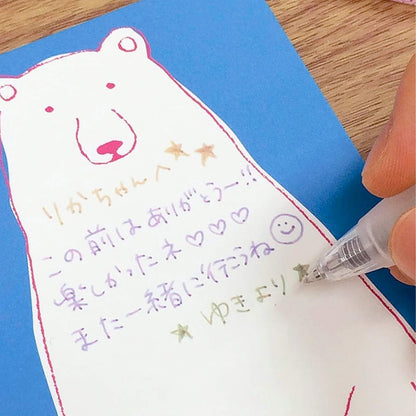 りかちゃんへ★★
この前はありがとうー!!
楽しかったネ♡♡♡
また一緒に行こうね☺
★ゆきより★